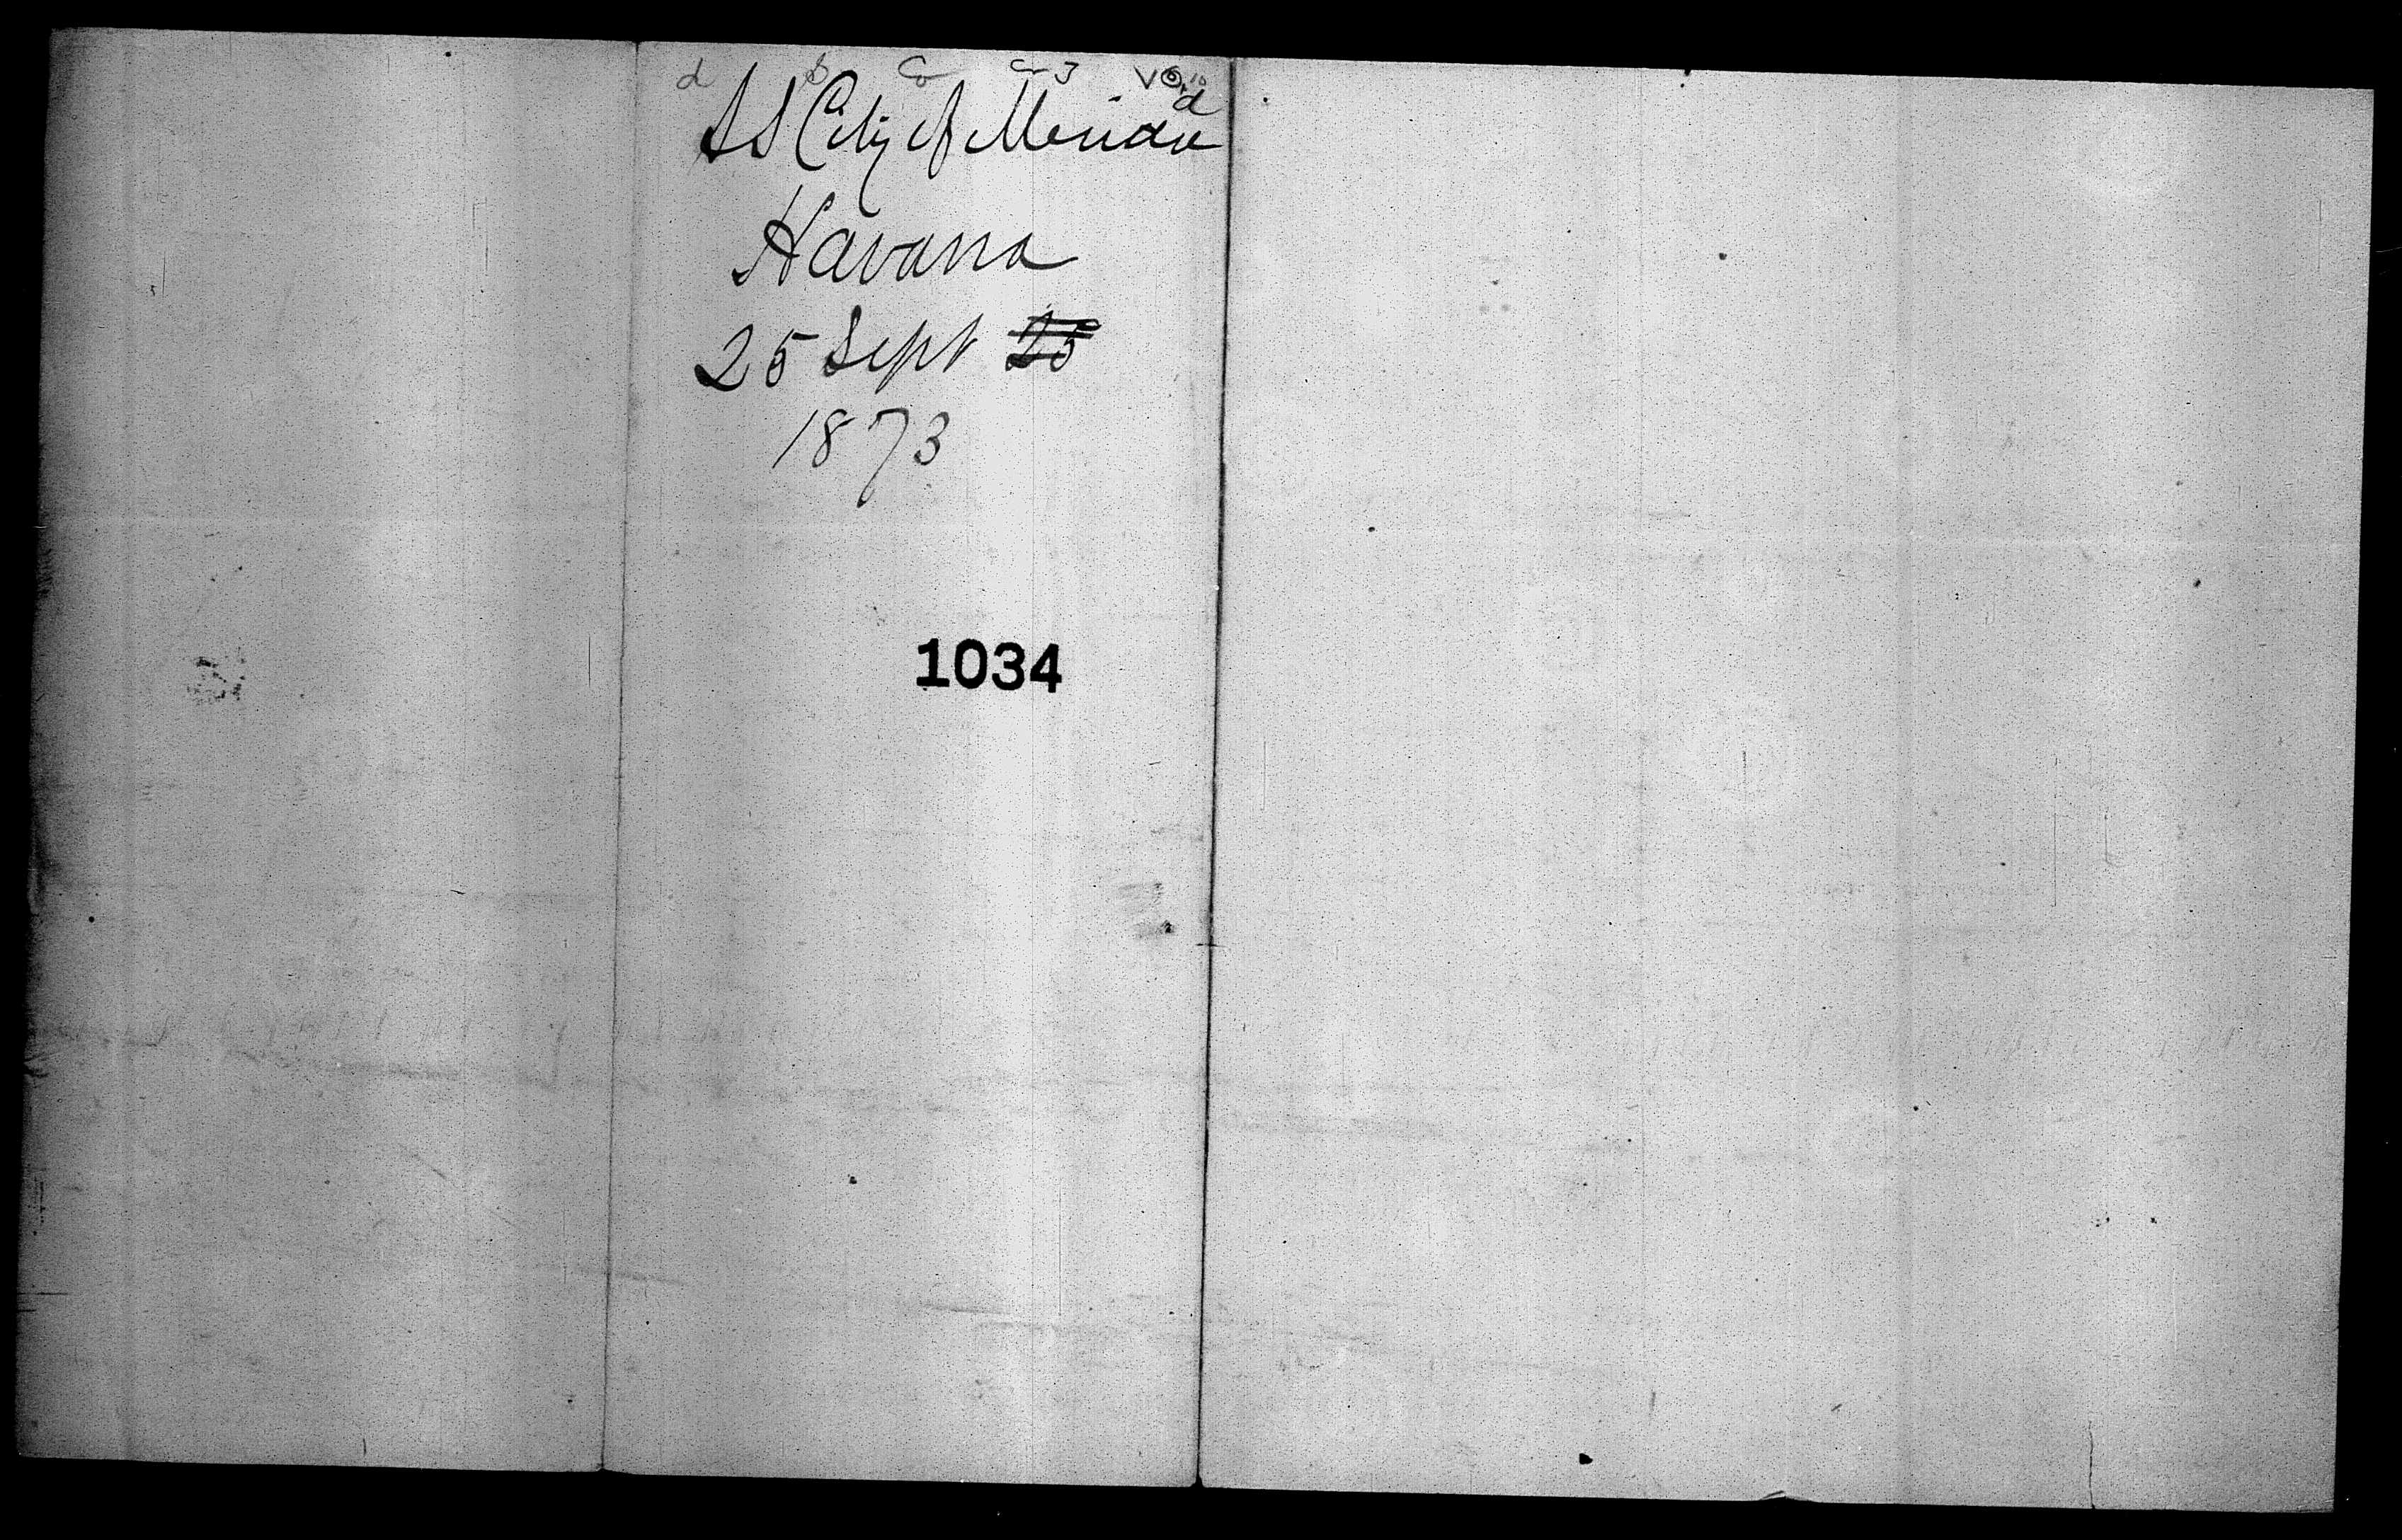 SS City of Merida
Havana
25 Sept 25
1873
1034